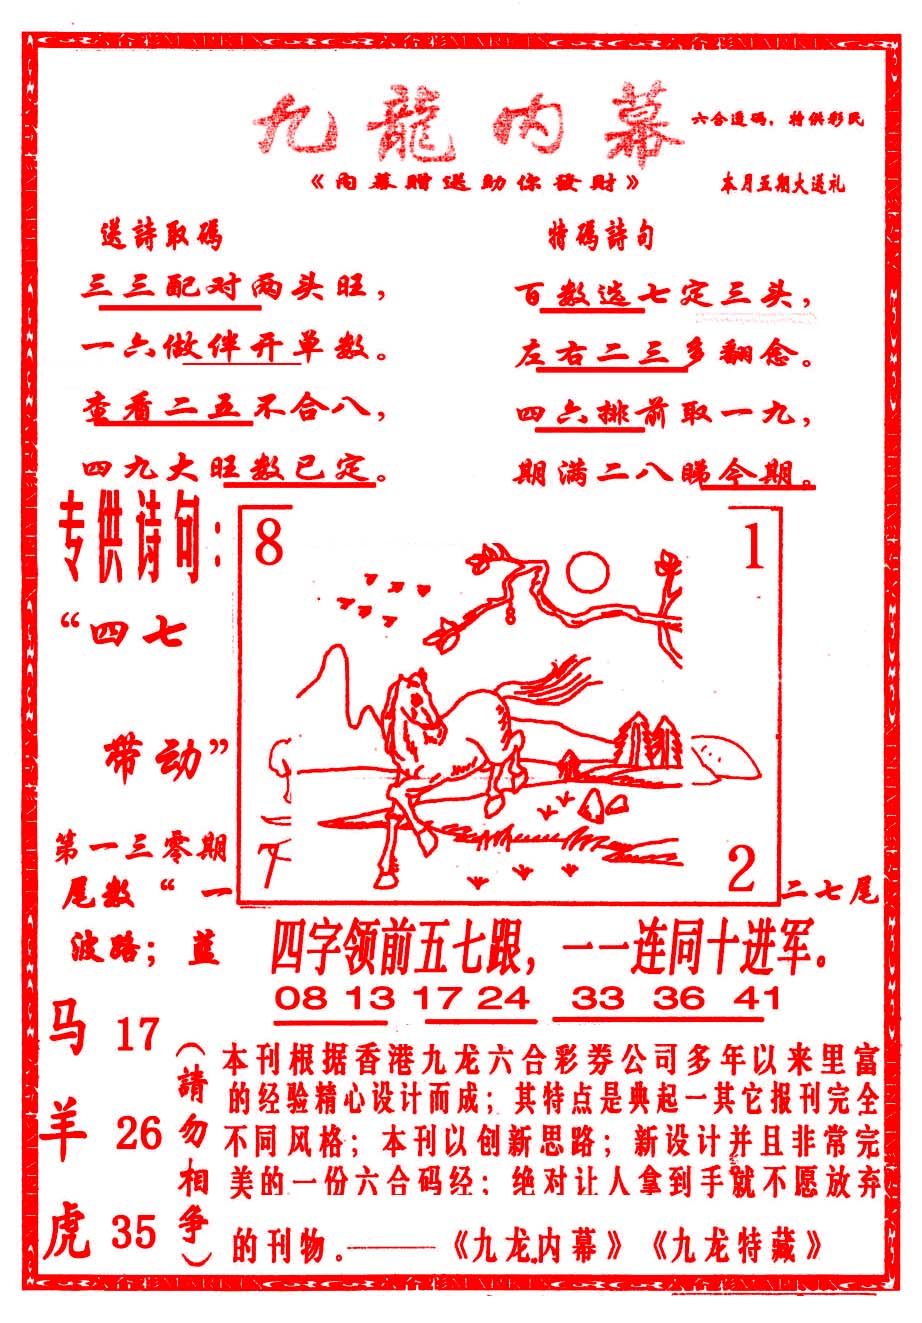 九龍内幕
六合透码，特供彩民
《内幕赠送助你發財》
本月五期大送礼
送詩取碼
三三配对两头旺，
一六做伴开单数。
查看二五不合八，
四九大旺数已定。
特碼詩句
百数选七定三头，
左右二三多翻念。
四六排前取一九，
期满二八睇今期。
专供诗句：
“四七
带动”
8
1
2
第一三零期
尾数“一
二七尾
波路；蓝
四字领前五七跟，一一连同十进军。
08 13 17 24 33 36 41
马 17
羊 26
虎 35
（請勿相争）
本刊根据香港九龙六合彩券公司多年以来里富
的经验精心设计而成；其特点是典起一其它报刊完全
不同风格；本刊以创新思路；新设计并且非常完
美的一份六合码经；绝对让人拿到手就不愿放弃
的刊物。——《九龙内幕》《九龙特藏》